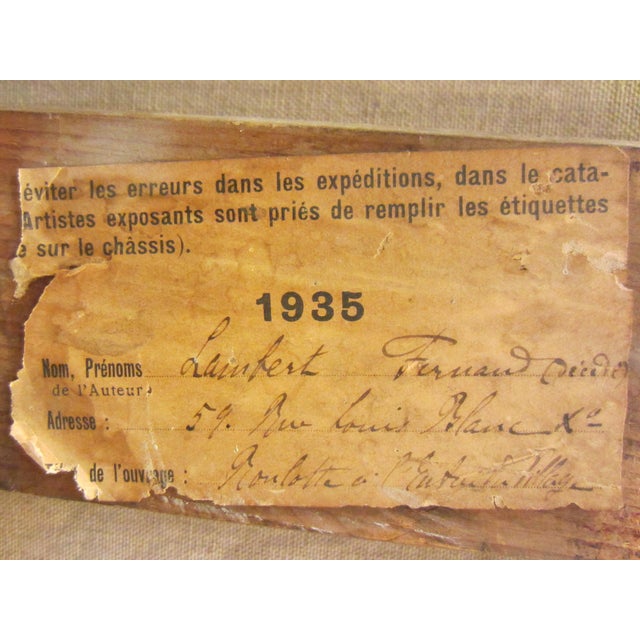 éviter les erreurs dans les expéditions, dans le cata-
Artistes exposants sont priés de remplir les étiquettes
sur le châssis).
1935
Nom, Prénoms Lambert Fernand
de l'Auteur
Adresse : 59. Rue Louis Blanc Xe
de l'ouvrage : Roulotte à l'Entrée du Village